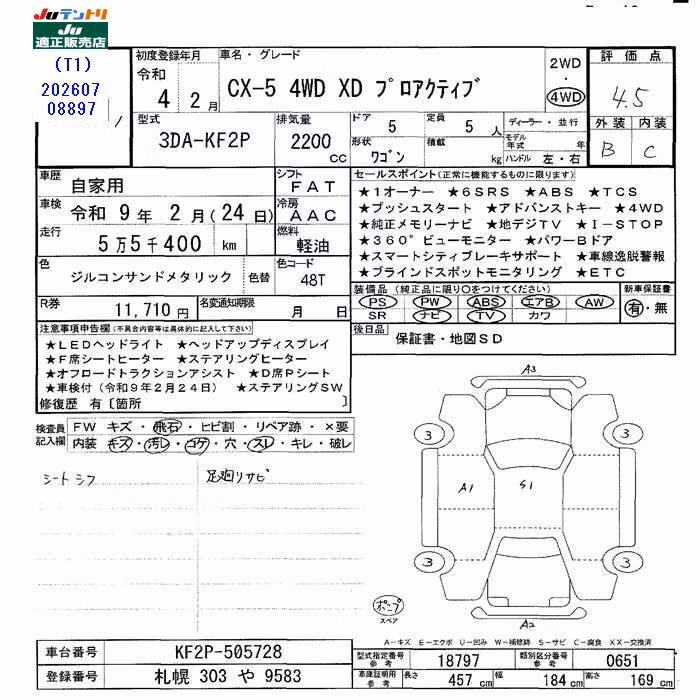 Juテントリ
Ju
適正販売店
(T1)
202607
08897
初度登録年月
令和
4 2月
車名・グレード
CX-5 4WD XD プロアクティブ
2WD
・
4WD
評価点
4.5
外装 内装
B C
型式
3DA-KF2P
排気量
2200 cc
ドア 5
定員 5 人
ディーラー・並行
形状 ワゴン
積載 kg
モデル年式 年
ハンドル 左・右
車歴 自家用
シフト FAT
車検 令和 9年 2月(24日)
冷房 AAC
走行 5万5千400 km
燃料 軽油
色 ジルコンサンドメタリック 色替
色コード 48T
R券 11,710円
名変通知期限 月 日
セールスポイント(正常に機能するものに限ります)
★1オーナー ★6SRS ★ABS ★TCS
★プッシュスタート ★アドバンストキー ★4WD
★純正メモリーナビ ★地デジTV ★I-STOP
★360°ビューモニター ★パワーBドア
★スマートシティブレーキサポート ★車線逸脱警報
★ブラインドスポットモニタリング ★ETC
装備品(純正品に限り○をつけてください) 新車保証書
PS PW ABS エアB AW 有・無
SR ナビ TV カワ
後日品 保証書・地図SD
注意事項申告欄(不具合内容等は具体的に記入して下さい)
★LEDヘッドライト ★ヘッドアップディスプレイ
★F席シートヒーター ★ステアリングヒーター
★オフロードトラクションアシスト ★D席Pシート
★車検付(令和9年2月24日) ★ステアリングSW
修復歴 有〔箇所 〕
検査員記入欄
FW キズ・飛石・ヒビ割・リペア跡・×要
内装 キズ・汚レ・コゲ・穴・スレ・キレ・破レ
シートシワ
足廻リサビ
A3
3 3
A1 S1
3 3
A2
ポンプ
スペア
A-キズ E-エクボ U-凹み W-補修跡 S-サビ C-腐食 XX-交換済
車台番号 KF2P-505728
型式指定番号 参考 18797
類別区分番号 参考 0651
登録番号 札幌 303 や 9583
車庫証明用 参考 長さ 457 cm 幅 184 cm 高さ 169 cm